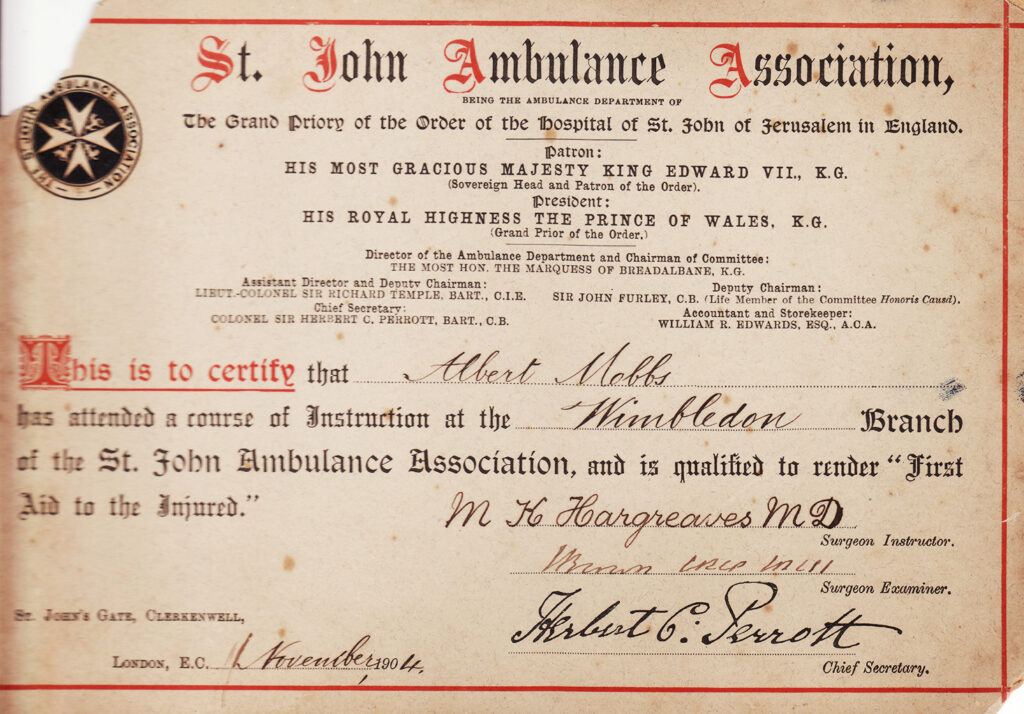 St. John Ambulance Association,
BEING THE AMBULANCE DEPARTMENT OF
The Grand Priory of the Order of the Hospital of St. John of Jerusalem in England.
THE ST JOHN AMBULANCE ASSOCIATION
Patron:
HIS MOST GRACIOUS MAJESTY KING EDWARD VII., K.G.
(Sovereign Head and Patron of the Order).
President:
HIS ROYAL HIGHNESS THE PRINCE OF WALES, K.G.
(Grand Prior of the Order.)
Director of the Ambulance Department and Chairman of Committee:
THE MOST HON. THE MARQUESS OF BREADALBANE, K.G.
Assistant Director and Deputy Chairman:
LIEUT.-COLONEL SIR RICHARD TEMPLE, BART., C.I.E.
Deputy Chairman:
SIR JOHN FURLEY, C.B. (Life Member of the Committee Honoris Causâ).
Chief Secretary:
COLONEL SIR HERBERT C. PERROTT, BART., C.B.
Accountant and Storekeeper:
WILLIAM R. EDWARDS, ESQ., A.C.A.
This is to certify that Albert Mobbs
has attended a course of Instruction at the Wimbledon Branch
of the St. John Ambulance Association, and is qualified to render "First
Aid to the Injured."
M K Hargreaves MD
Surgeon Instructor.
Surgeon Examiner.
Herbert C. Perrott
Chief Secretary.
ST. JOHN'S GATE, CLERKENWELL,
LONDON, E.C. November, 1904.